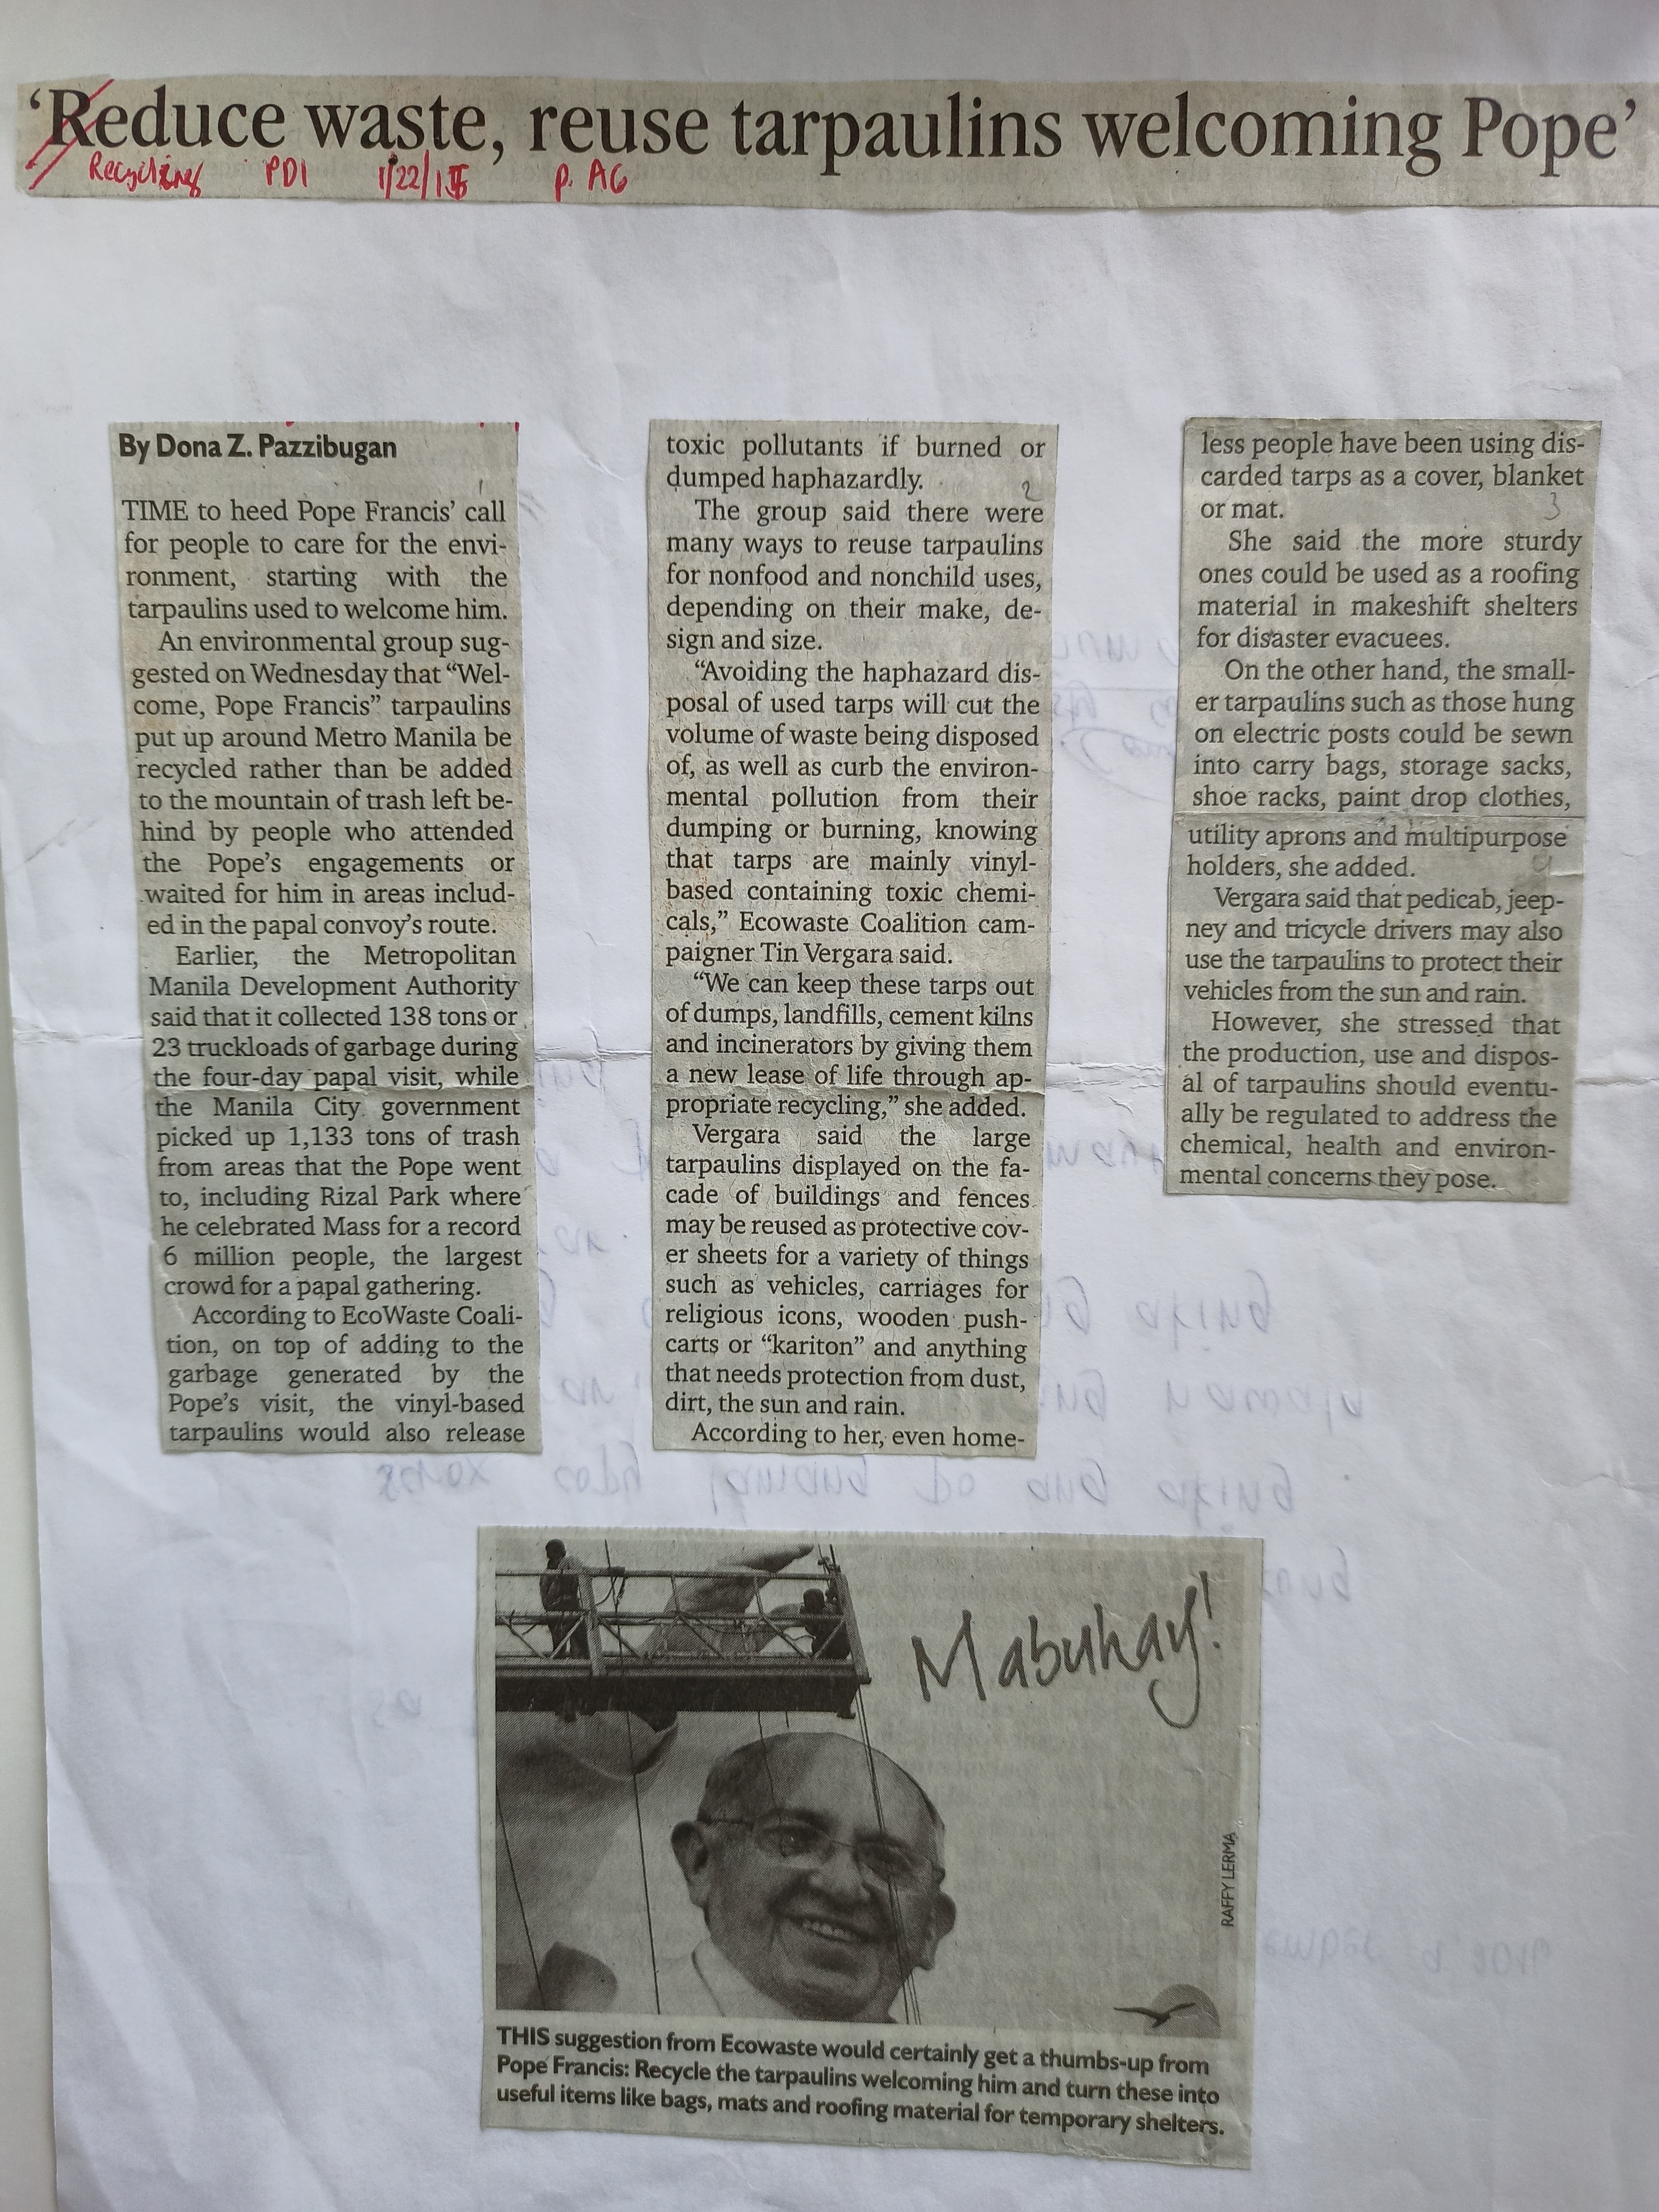 ‘Reduce waste, reuse tarpaulins welcoming Pope’
Recycling PDI 1/22/15 p. A6
By Dona Z. Pazzibugan
1
TIME to heed Pope Francis’ call
for people to care for the envi-
ronment, starting with the
tarpaulins used to welcome him.
An environmental group sug-
gested on Wednesday that “Wel-
come, Pope Francis” tarpaulins
put up around Metro Manila be
recycled rather than be added
to the mountain of trash left be-
hind by people who attended
the Pope’s engagements or
waited for him in areas includ-
ed in the papal convoy’s route.
Earlier, the Metropolitan
Manila Development Authority
said that it collected 138 tons or
23 truckloads of garbage during
the four-day papal visit, while
the Manila City government
picked up 1,133 tons of trash
from areas that the Pope went
to, including Rizal Park where
he celebrated Mass for a record
6 million people, the largest
crowd for a papal gathering.
According to EcoWaste Coali-
tion, on top of adding to the
garbage generated by the
Pope’s visit, the vinyl-based
tarpaulins would also release
toxic pollutants if burned or
dumped haphazardly.
2
The group said there were
many ways to reuse tarpaulins
for nonfood and nonchild uses,
depending on their make, de-
sign and size.
“Avoiding the haphazard dis-
posal of used tarps will cut the
volume of waste being disposed
of, as well as curb the environ-
mental pollution from their
dumping or burning, knowing
that tarps are mainly vinyl-
based containing toxic chemi-
cals,” Ecowaste Coalition cam-
paigner Tin Vergara said.
“We can keep these tarps out
of dumps, landfills, cement kilns
and incinerators by giving them
a new lease of life through ap-
propriate recycling,” she added.
Vergara said the large
tarpaulins displayed on the fa-
cade of buildings and fences
may be reused as protective cov-
er sheets for a variety of things
such as vehicles, carriages for
religious icons, wooden push-
carts or “kariton” and anything
that needs protection from dust,
dirt, the sun and rain.
According to her, even home-
less people have been using dis-
carded tarps as a cover, blanket
or mat.
3
She said the more sturdy
ones could be used as a roofing
material in makeshift shelters
for disaster evacuees.
On the other hand, the small-
er tarpaulins such as those hung
on electric posts could be sewn
into carry bags, storage sacks,
shoe racks, paint drop clothes,
utility aprons and multipurpose
holders, she added.
Vergara said that pedicab, jeep-
ney and tricycle drivers may also
use the tarpaulins to protect their
vehicles from the sun and rain.
However, she stressed that
the production, use and dispos-
al of tarpaulins should eventu-
ally be regulated to address the
chemical, health and environ-
mental concerns they pose.
Mabuhay!
RAFFY LERMA
THIS suggestion from Ecowaste would certainly get a thumbs-up from
Pope Francis: Recycle the tarpaulins welcoming him and turn these into
useful items like bags, mats and roofing material for temporary shelters.